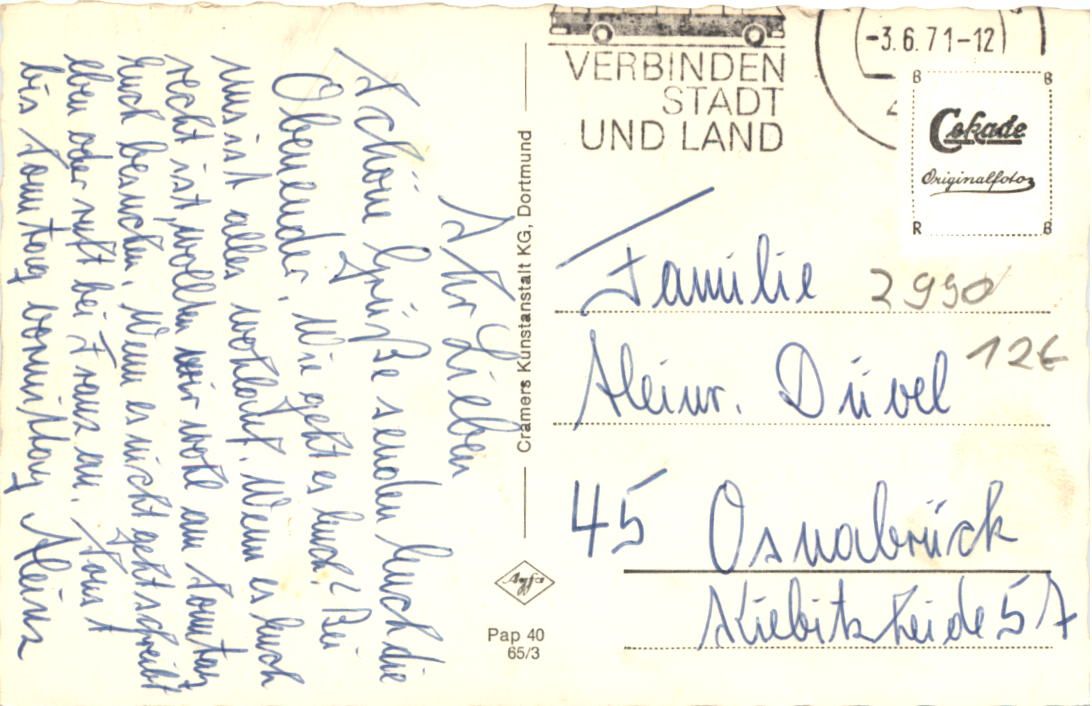 Ihr Lieben
Schöne Grüße senden Euch die
Obenender. Wie geht es Euch? Bei
uns ist alles wohlauf. Wenn es Euch
recht ist, wollten wir wohl am Sonntag
Euch besuchen. Wenn es nicht geht schreibt
eben oder ruft bei Franz an. Sonst
bis Sonntag vormittag Heinz
Cramers Kunstanstalt KG, Dortmund
Agfa
Pap 40
65/3
VERBINDEN
STADT
UND LAND
-3.6.71-12
4
B B
Cekade
Originalfoto
R B
Familie
2990
Heinr. Düvel
12€
45 Osnabrück
Kiebitzheide 57